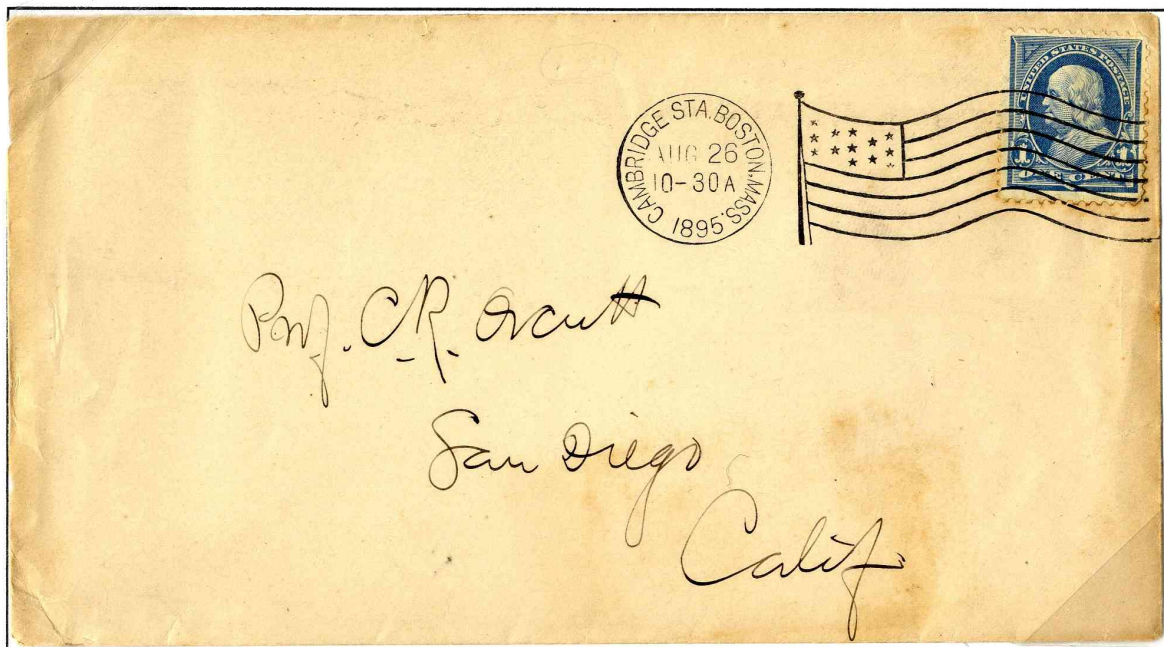 CAMBRIDGE STA. BOSTON, MASS.
AUG 26
10-30 A
1895
UNITED STATES POSTAGE
1 1
ONE CENT
Prof. C. R. Orcutt
San Diego
Calif.